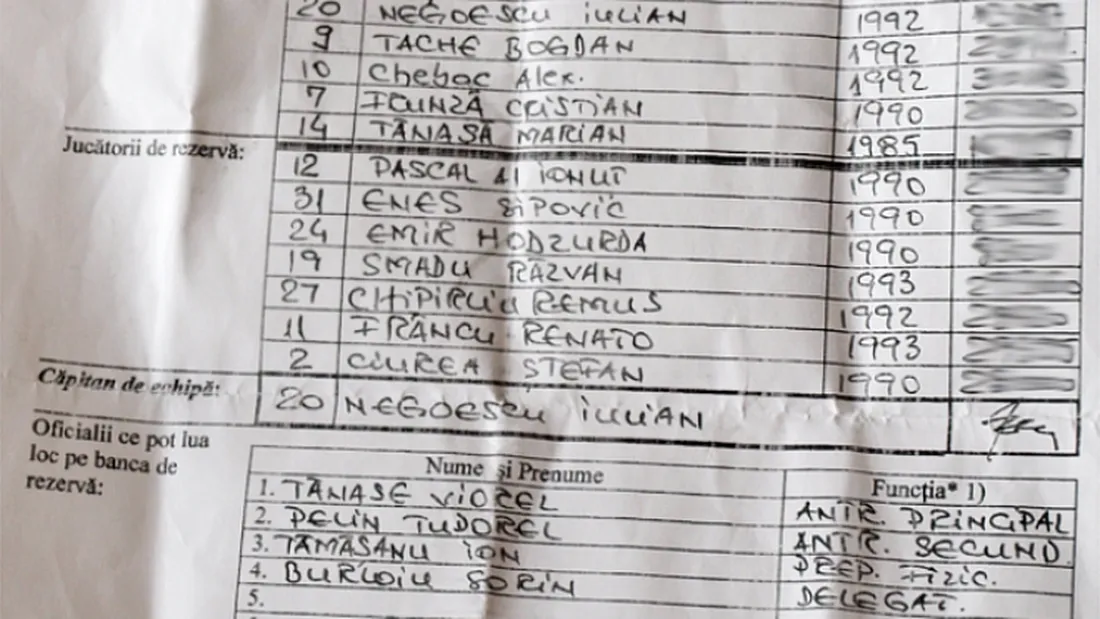 20 NEGOESCU IULIAN 1992
9 TACHE BOGDAN 1992
10 Chebac Alex. 1992
7 FRUNZĂ CRISTIAN 1990
14 TĂNASĂ MARIAN 1985
Jucătorii de rezervă:
12 PASCAL Al IONUT 1990
31 ENES SIPOVIC 1990
24 EMIR HODZURDA 1990
19 SMADU RĂZVAN 1993
27 CHIPIRLIU REMUS 1992
11 FRÂNCU RENATO 1993
2 CIUREA ȘTEFAN 1990
Căpitan de echipă: 20 NEGOESCU IULIAN
Oficialii ce pot lua loc pe banca de rezervă:
Nume și Prenume Funcția* 1)
1. TĂNASE VIOREL ANTR. PRINCIPAL
2. PELIN TUDOREL ANTR. SECUND.
3. TĂMĂSANU ION PREP. FIZIC.
4. BURLOIU SORIN DELEGAT.
5.